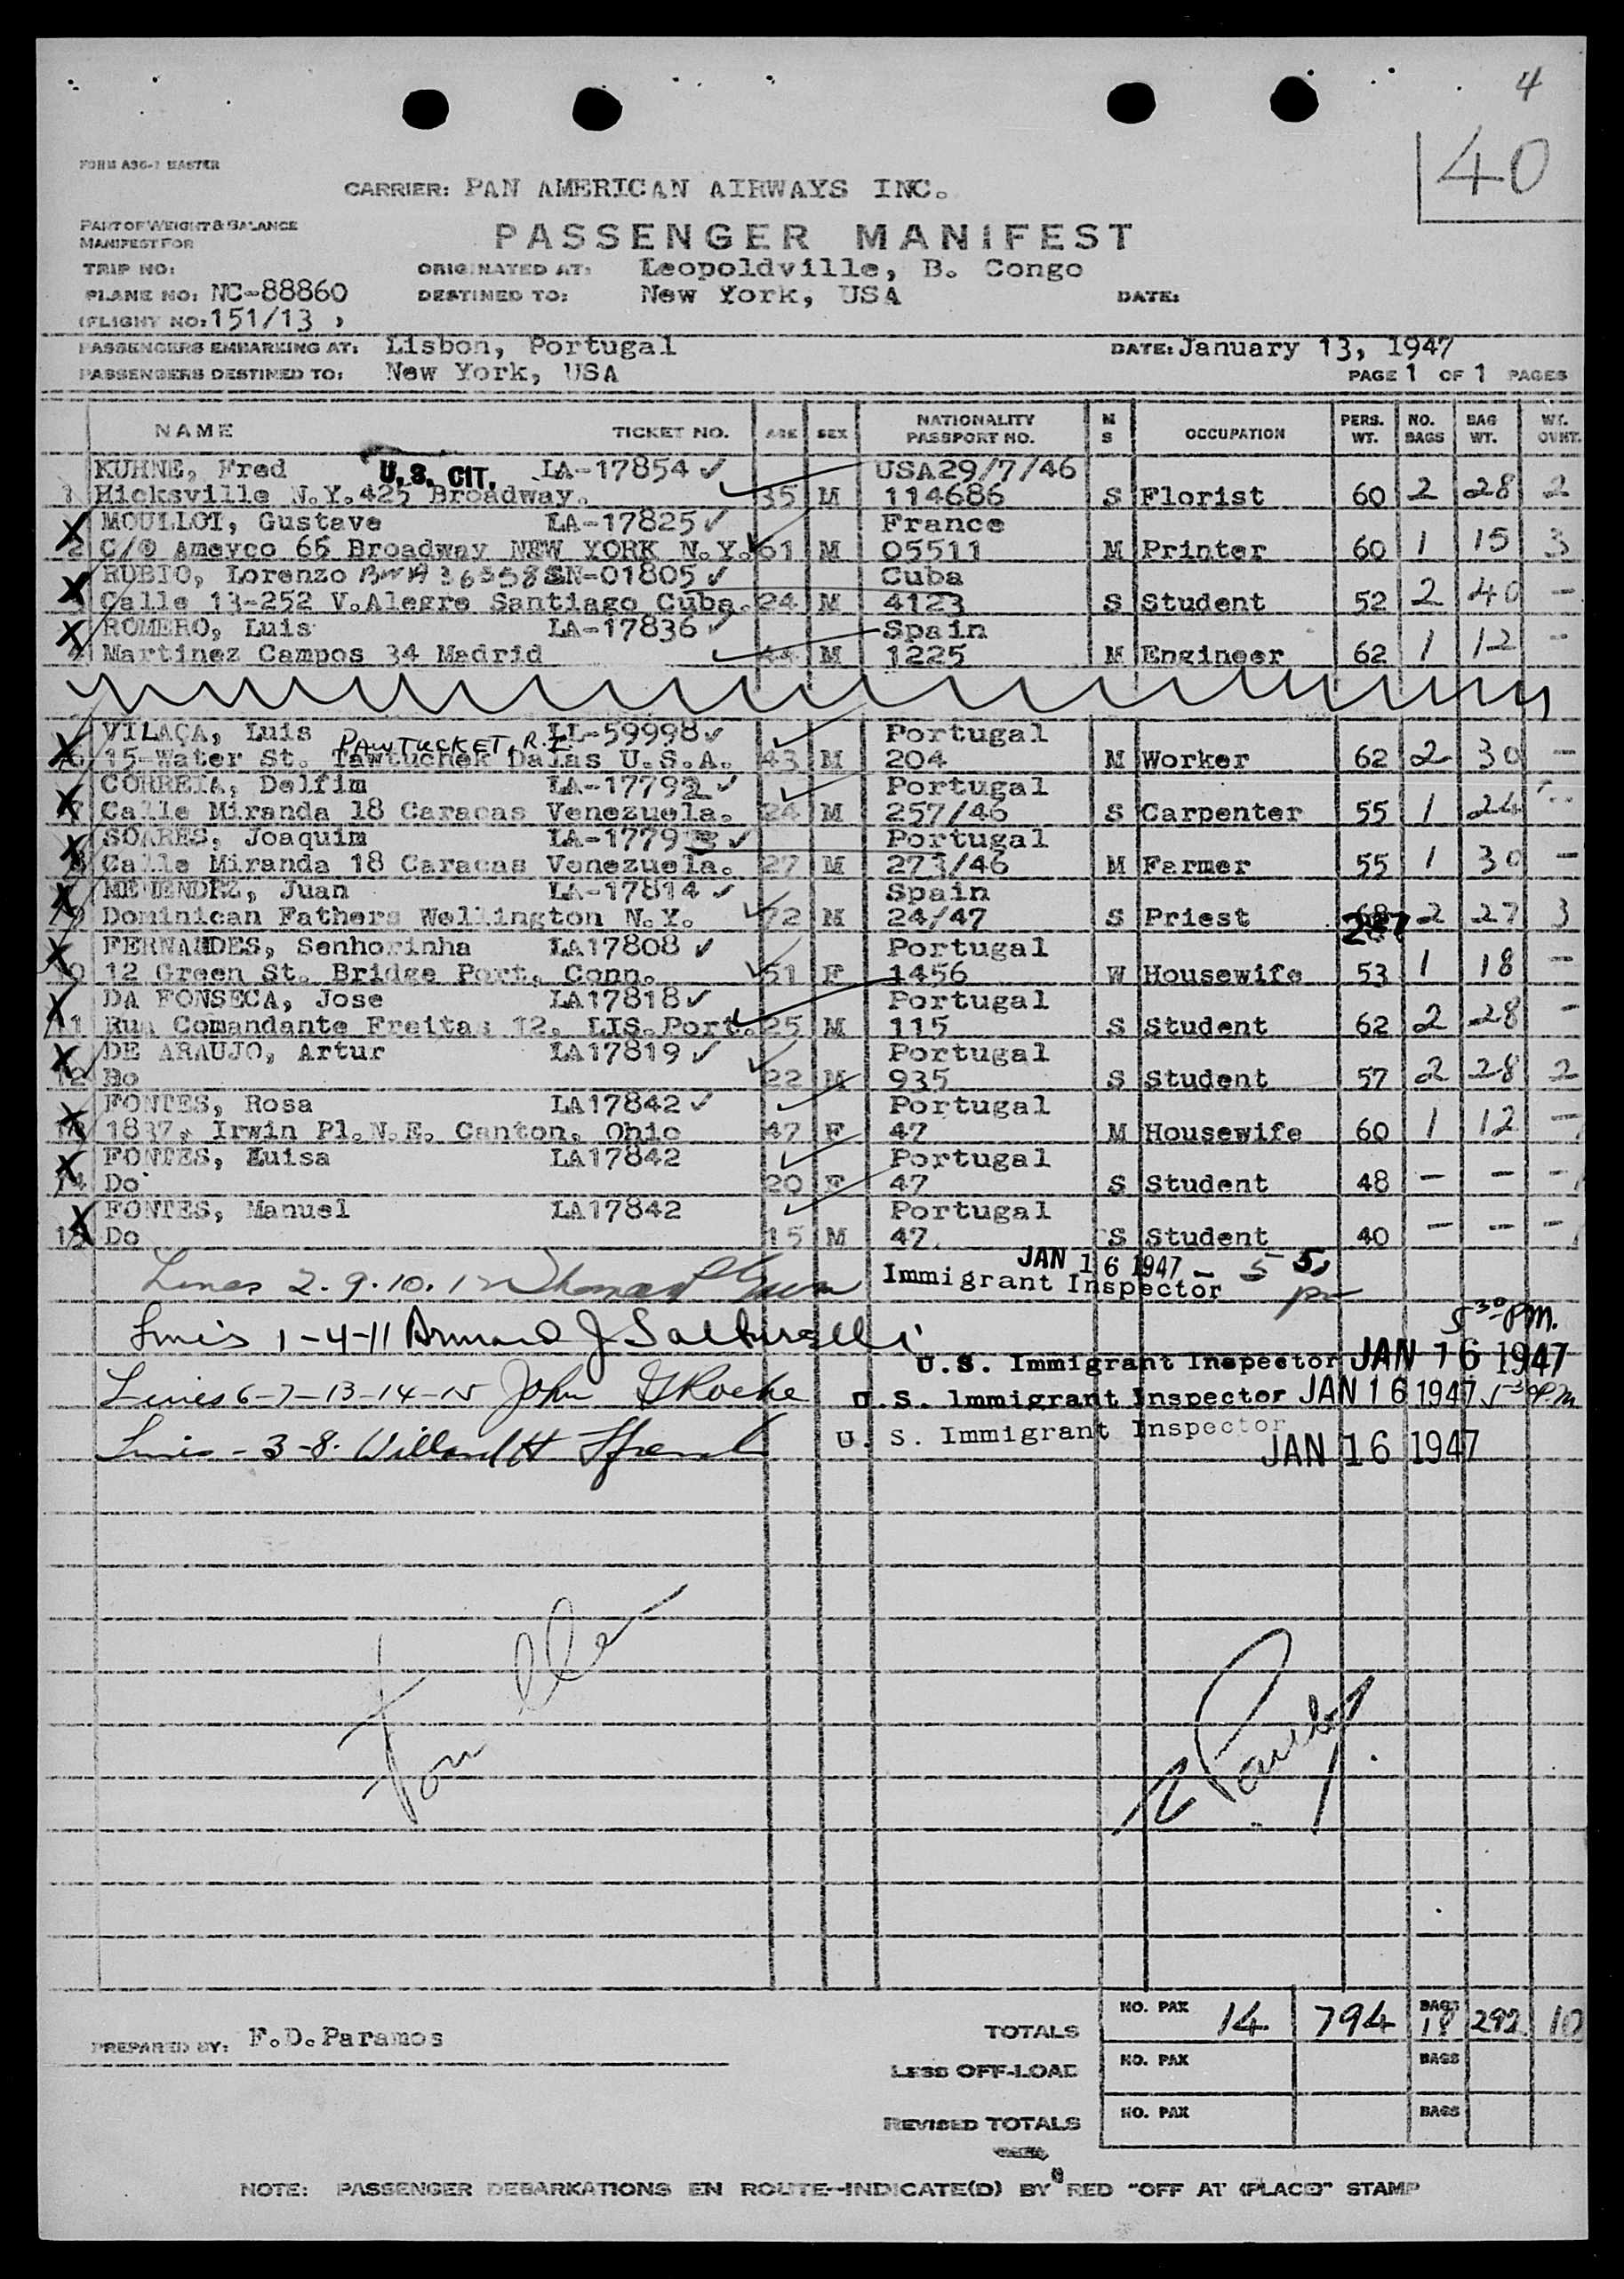 4
40
FORM A36-1 MASTER
CARRIER: PAN AMERICAN AIRWAYS INC.
PART OF WEIGHT & BALANCE
MANIFEST FOR
PASSENGER MANIFEST
TRIP NO: ORIGINATED AT: Leopoldville, B. Congo
PLANE NO: NC-88860 DESTINED TO: New York, USA DATE:
(FLIGHT NO: 151/13 )
PASSENGERS EMBARKING AT: Lisbon, Portugal DATE: January 13, 1947
PASSENGERS DESTINED TO: New York, USA PAGE 1 OF 1 PAGES
NAME TICKET NO. AGE SEX NATIONALITY PASSPORT NO. M S OCCUPATION PERS. WT. NO. BAGS BAG WT. WT. OVHT.
KUHNE, Fred U.S. CIT. LA-17854 ✓ USA29/7/46
1 Hicksville N.Y. 425 Broadway. 35 M 114686 S Florist 60 2 28 2
X MOULLOT, Gustave LA-17825 ✓ France
2 C/O Ameyco 65 Broadway NEW YORK N.Y. 61 M 05511 M Printer 60 1 15 3
X RUBIO, Lorenzo SN-01805 ✓ Cuba
3 Calle 13-252 V.Alegre Santiago Cuba. 24 M 4123 S Student 52 2 40 -
X ROMERO, Luis LA-17836 ✓ Spain
4 Martinez Campos 34 Madrid 44 M 1225 M Engineer 62 1 12 -
X VILAÇA, Luis LL-59998 ✓ Portugal
PAWTUCKET, R.I.
6 15-Water St. Tawtuchek Dalas U.S.A. 43 M 204 M Worker 62 2 30 -
X CORREIA, Delfim LA-17792 ✓ Portugal
7 Calle Miranda 18 Caracas Venezuela. 24 M 257/46 S Carpenter 55 1 24 -
X SOARES, Joaquim LA-17793 ✓ Portugal
8 Calle Miranda 18 Caracas Venezuela. 27 M 273/46 M Farmer 55 1 30 -
X MENENDEZ, Juan LA-17814 ✓ Spain
9 Dominican Fathers Wellington N.Y. 72 M 24/47 S Priest 68 2 27 3
X FERNANDES, Senhorinha LA17808 ✓ Portugal
10 12 Green St. Bridge Port, Conn. 51 F 1456 W Housewife 53 1 18 -
X DA FONSECA, Jose LA17818 ✓ Portugal
11 Rua Comandante Freitas 12, LIS.Port. 25 M 115 S Student 62 2 28 -
X DE ARAUJO, Artur LA17819 ✓ Portugal
12 Do 22 M 935 S Student 57 2 28 2
X FONTES, Rosa LA17842 ✓ Portugal
13 1837, Irwin Pl.N.E. Canton, Ohio 47 F 47 M Housewife 60 1 12 -
X FONTES, Luisa LA17842 Portugal
14 Do 20 F 47 S Student 48 - - -
X FONTES, Manuel LA17842 Portugal
15 Do 15 M 47 S Student 40 - - -
Lines 2. 9. 10. 12 JAN 16 1947 - 5 5
Immigrant Inspector pm
5 30 PM.
Lines 1-4-11 Armand J U.S. Immigrant Inspector JAN 16 1947
Lines 6-7-13-14-15 John G Roche U.S. Immigrant Inspector JAN 16 1947 5 30 P.M
Lines - 3-8. Willard H U. S. Immigrant Inspector
JAN 16 1947
PREPARED BY: F.D.Paramos
TOTALS NO. PAX 14 794 BAGS 18 292 10
LESS OFF-LOAD NO. PAX BAGS
REVISED TOTALS NO. PAX BAGS
NOTE: PASSENGER DEBARKATIONS EN ROUTE--INDICATE(D) BY RED "OFF AT (PLACE)" STAMP